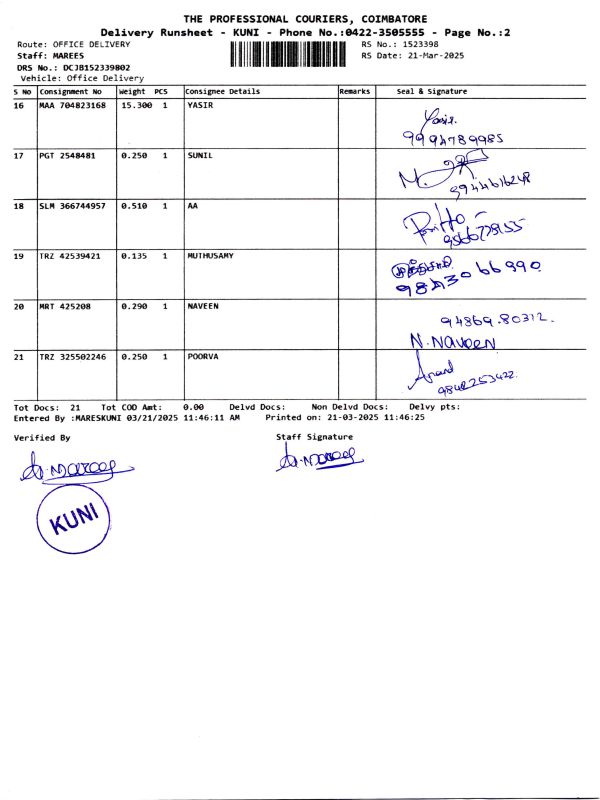 THE PROFESSIONAL COURIERS, COIMBATORE
Delivery Runsheet - KUNI - Phone No.:0422-3505555 - Page No.:2
Route: OFFICE DELIVERY RS No.: 1523398
Staff: MAREES RS Date: 21-Mar-2025
DRS No.: DCJB152339802
Vehicle: Office Delivery
S No Consignment No Weight PCS Consignee Details Remarks Seal & Signature
16 MAA 704823168 15.300 1 YASIR Yasir.
9994789985
17 PGT 2548481 0.250 1 SUNIL
9944616248
18 SLM 366744957 0.510 1 AA
19 TRZ 42539421 0.135 1 MUTHUSAMY
9843066990
20 MRT 425208 0.290 1 NAVEEN 94869.80312.
N.NAVEEN
21 TRZ 325502246 0.250 1 POORVA Anand
9842253422
Tot Docs: 21 Tot COD Amt: 0.00 Delvd Docs: Non Delvd Docs: Delvy pts:
Entered By :MARESKUNI 03/21/2025 11:46:11 AM Printed on: 21-03-2025 11:46:25
Verified By Staff Signature
KUNI